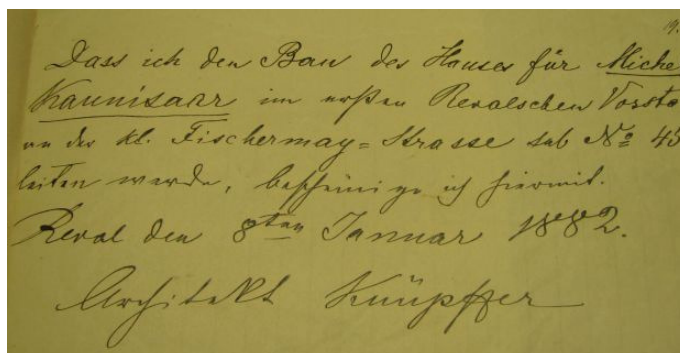 19.
Dass ich den Bau des Hauses für Miche
Kaunisaar im ersten Revalschen Vorsta
an der kl. Fischermay=Strasse sub № 45
leiten werde, bescheinige ich hiermit.
Reval den 8ten Januar 1882.
Architekt Knüpffer